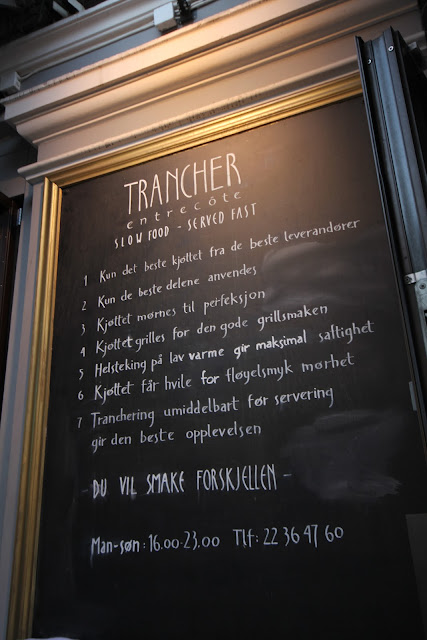 TRANCHER
entrecôte
SLOW FOOD - SERVED FAST
1 Kun det beste kjøttet fra de beste leverandører
2 Kun de beste delene anvendes
3 Kjøttet mørnes til perfeksjon
4 Kjøttet grilles for den gode grillsmaken
5 Helsteking på lav varme gir maksimal saftighet
6 Kjøttet får hvile for fløyelsmyk mørhet
7 Tranchering umiddelbart før servering
gir den beste opplevelsen
- DU VIL SMAKE FORSKJELLEN -
Man-søn: 16.00-23.00 Tlf: 22 36 47 60